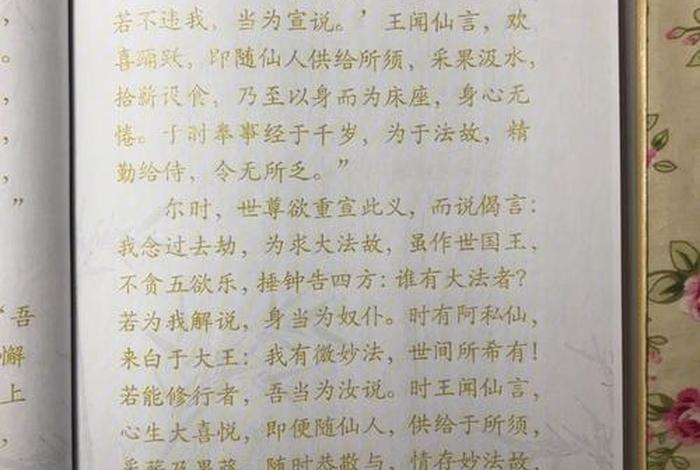 若不违我，当为宣说。’王闻仙言，欢
喜踊跃，即随仙人供给所须，采果汲水，
拾薪设食，乃至以身而为床座，身心无
倦。于时奉事经于千岁，为于法故，精
勤给侍，令无所乏。”
尔时，世尊欲重宣此义，而说偈言：
我念过去劫，为求大法故，虽作世国王，
不贪五欲乐，捶钟告四方：谁有大法者？
若为我解说，身当为奴仆。时有阿私仙，
来白于大王：我有微妙法，世间所希有！
若能修行者，吾当为汝说。时王闻仙言，
心生大喜悦，即便随仙人，供给于所须，
采薪及果蓏，随时恭敬与，情存妙法故
，
。
，
，
，
”
“吾
懈
上
，